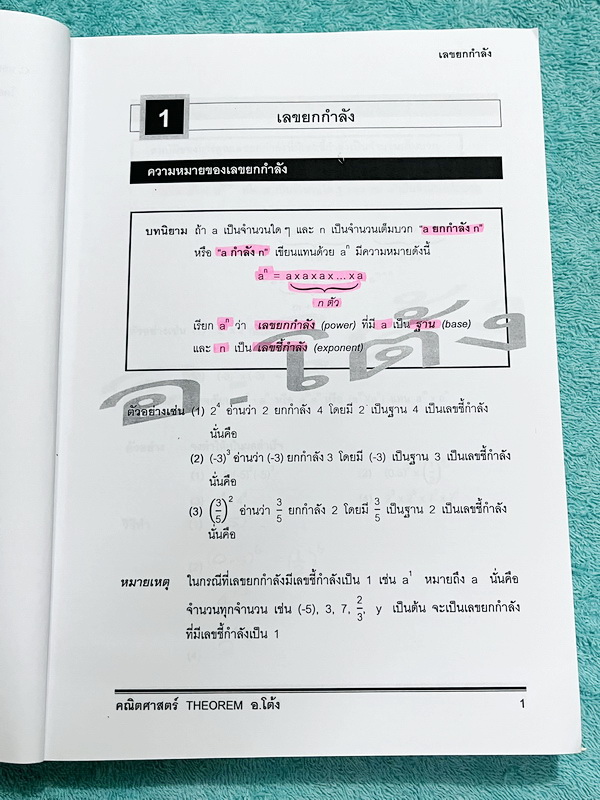 เลขยกกำลัง
1 เลขยกกำลัง
ความหมายของเลขยกกำลัง
บทนิยาม ถ้า a เป็นจำนวนใด ๆ และ n เป็นจำนวนเต็มบวก "a ยกกำลัง n"
หรือ "a กำลัง n" เขียนแทนด้วย aⁿ มีความหมายดังนี้
aⁿ = a x a x a x ... x a
n ตัว
เรียก aⁿ ว่า เลขยกกำลัง (power) ที่มี a เป็น ฐาน (base)
และ n เป็น เลขชี้กำลัง (exponent)
อ.โต้ง
ตัวอย่างเช่น (1) 2⁴ อ่านว่า 2 ยกกำลัง 4 โดยมี 2 เป็นฐาน 4 เป็นเลขชี้กำลัง
นั่นคือ
(2) (-3)³ อ่านว่า (-3) ยกกำลัง 3 โดยมี (-3) เป็นฐาน 3 เป็นเลขชี้กำลัง
นั่นคือ
(3) (3/5)² อ่านว่า 3/5 ยกกำลัง 2 โดยมี 3/5 เป็นฐาน 2 เป็นเลขชี้กำลัง
นั่นคือ
หมายเหตุ ในกรณีที่เลขยกกำลังมีเลขชี้กำลังเป็น 1 เช่น a¹ หมายถึง a นั่นคือ
จำนวนทุกจำนวน เช่น (-5), 3, 7, 2/3, y เป็นต้น จะเป็นเลขยกกำลัง
ที่มีเลขชี้กำลังเป็น 1
คณิตศาสตร์ THEOREM อ.โต้ง 1